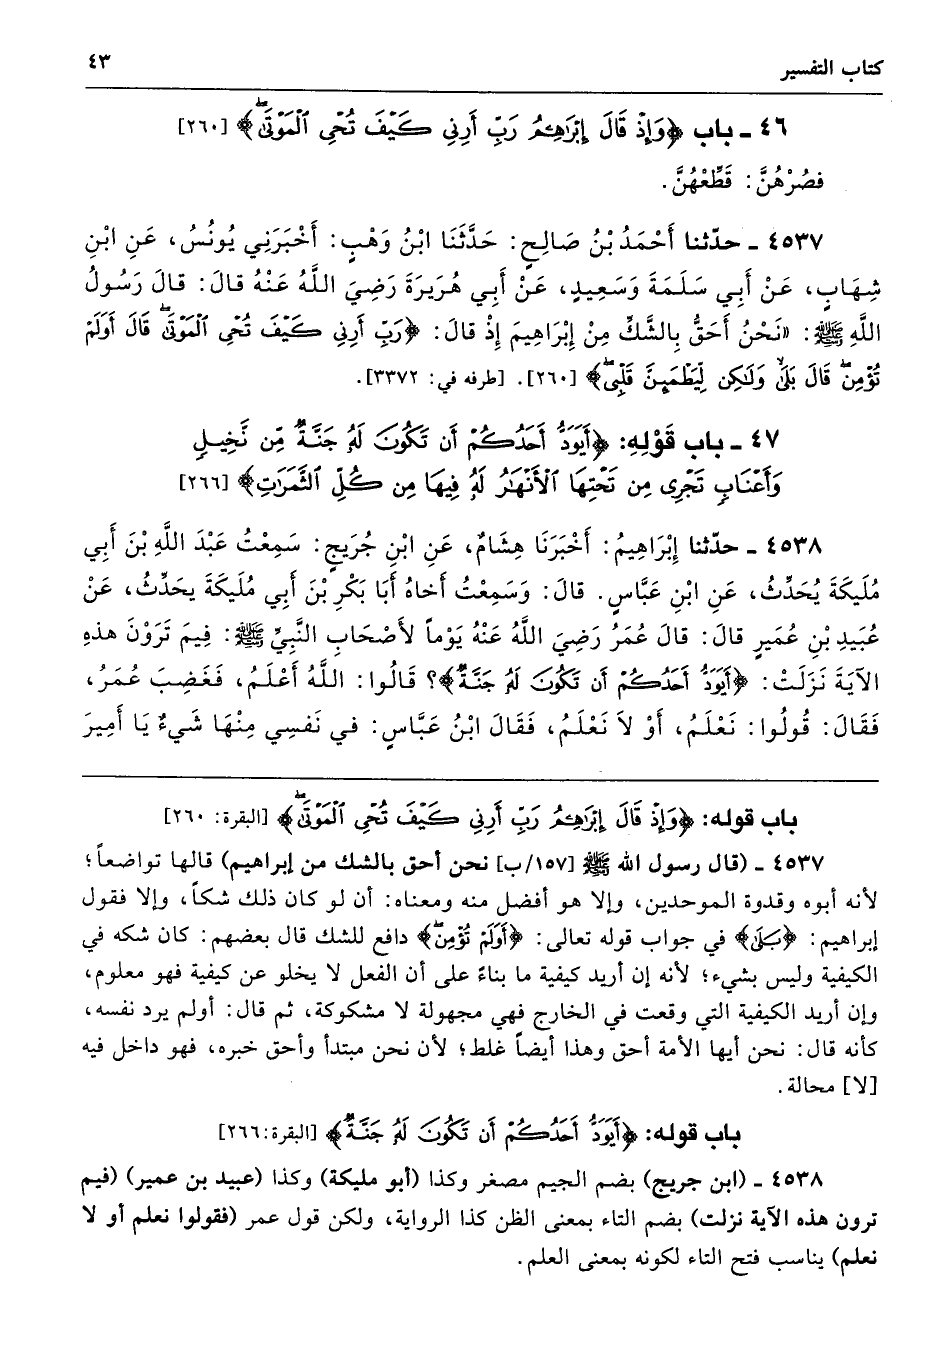 كتاب التفسير
٤٣
٤٦ ـ باب ﴿وَإِذْ قَالَ إِبْرَٰهِـۧمُ رَبِّ أَرِنِي كَيْفَ تُحْيِ ٱلْمَوْتَىٰۖ﴾ [٢٦٠]
فصُرْهُنَّ: قَطِّعْهُنَّ.
٤٥٣٧ ـ حدّثنا أَحْمَدُ بْنُ صَالِحٍ: حَدَّثَنَا ابْنُ وَهْبٍ: أَخْبَرَنِي يُونُسُ، عَنِ ابْنِ
شِهَابٍ، عَنْ أَبِي سَلَمَةَ وَسَعِيدٍ، عَنْ أَبِي هُرَيرَةَ رَضِيَ اللَّهُ عَنْهُ قالَ: قالَ رَسُولُ
اللَّهِ ﷺ: «نَحْنُ أَحَقُّ بِالشَّكِّ مِنْ إِبْرَاهِيمَ إِذْ قالَ: ﴿رَبِّ أَرِنِي كَيْفَ تُحْيِ ٱلْمَوْتَىٰۖ قَالَ أَوَلَمْ
تُؤْمِنۖ قَالَ بَلَىٰ وَلَٰكِن لِّيَطْمَئِنَّ قَلْبِيۖ﴾ [٢٦٠]. [طرفه في: ٣٣٧٢].
٤٧ ـ باب قَوْلِهِ: ﴿أَيَوَدُّ أَحَدُكُمْ أَن تَكُونَ لَهُۥ جَنَّةٌ مِّن نَّخِيلٍ
وَأَعْنَابٍ تَجْرِي مِن تَحْتِهَا ٱلْأَنْهَٰرُ لَهُۥ فِيهَا مِن كُلِّ ٱلثَّمَرَٰتِ﴾ [٢٦٦]
٤٥٣٨ ـ حدّثنا إِبْرَاهِيمُ: أَخْبَرَنَا هِشَامٌ، عَنِ ابْنِ جُرَيجٍ: سَمِعْتُ عَبْدَ اللَّهِ بْنَ أَبِي
مُلَيكَةَ يُحَدِّثُ، عَنِ ابْنِ عَبَّاسٍ. قالَ: وَسَمِعْتُ أَخاهُ أَبَا بَكْرِ بْنَ أَبِي مُلَيكَةَ يحَدِّثُ، عَنْ
عُبَيدِ بْنِ عُمَيرٍ قالَ: قالَ عُمَرُ رَضِيَ اللَّهُ عَنْهُ يَوْماً لأَصْحَابِ النَّبِيِّ ﷺ: فِيمَ تَرَوْنَ هذهِ
الآيَةَ نَزَلَتْ: ﴿أَيَوَدُّ أَحَدُكُمْ أَن تَكُونَ لَهُۥ جَنَّةٌ﴾؟ قَالُوا: اللَّهُ أَعْلَمُ، فَغَضِبَ عُمَرُ،
فَقَالَ: قُولُوا: نَعْلَمُ، أَوْ لاَ نَعْلَمُ، فَقَالَ ابْنُ عَبَّاسٍ: في نَفسِي مِنْهَا شَيءٌ يَا أَمِيرَ
باب قوله: ﴿وَإِذْ قَالَ إِبْرَٰهِـۧمُ رَبِّ أَرِنِي كَيْفَ تُحْيِ ٱلْمَوْتَىٰۖ﴾ [البقرة: ٢٦٠]
٤٥٣٧ ـ (قال رسول الله ﷺ [١٥٧/ب] نحن أحق بالشك من إبراهيم) قالها تواضعاً؛
لأنه أبوه وقدوة الموحدين، وإلا هو أفضل منه ومعناه: أن لو كان ذلك شكاً، وإلا فقول
إبراهيم: ﴿بَلَىٰ﴾ في جواب قوله تعالى: ﴿أَوَلَمْ تُؤْمِنۖ﴾ دافع للشك قال بعضهم: كان شكه في
الكيفية وليس بشيء؛ لأنه إن أريد كيفية ما بناءً على أن الفعل لا يخلو عن كيفية فهو معلوم،
وإن أريد الكيفية التي وقعت في الخارج فهي مجهولة لا مشكوكة، ثم قال: أولم يرد نفسه،
كأنه قال: نحن أيها الأمة أحق وهذا أيضاً غلط؛ لأن نحن مبتدأ وأحق خبره، فهو داخل فيه
[لا] محالة.
باب قوله: ﴿أَيَوَدُّ أَحَدُكُمْ أَن تَكُونَ لَهُۥ جَنَّةٌ﴾ [البقرة:٢٦٦]
٤٥٣٨ ـ (ابن جريج) بضم الجيم مصغر وكذا (أبو مليكة) وكذا (عبيد بن عمير) (فيم
ترون هذه الآية نزلت) بضم التاء بمعنى الظن كذا الرواية، ولكن قول عمر (فقولوا نعلم أو لا
نعلم) يناسب فتح التاء لكونه بمعنى العلم.